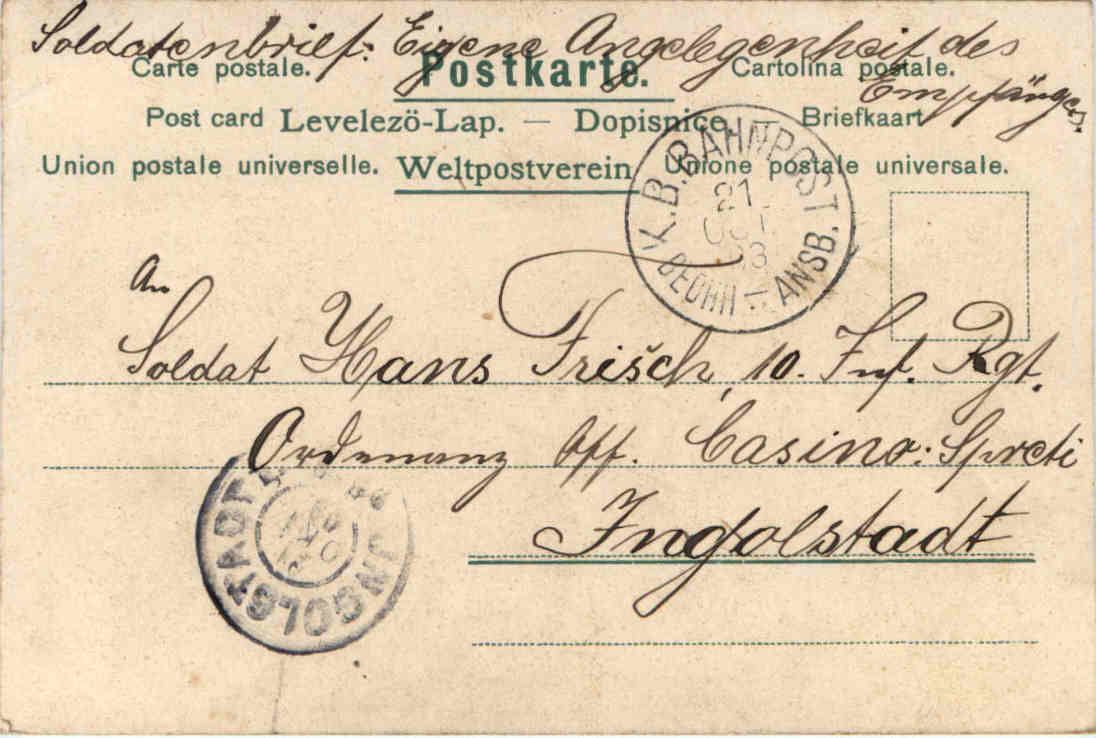 Soldatenbrief: Eigene Angelegenheit des
Empfängers.
Carte postale. Postkarte. Cartolina postale.
Post card Levelezö-Lap. — Dopisnice Briefkaart
Union postale universelle. Weltpostverein Unione postale universale.
K.B. BAHNPOST
21
OCT
03
ANSB.
An
Soldat Hans Frisch, 10. Inf. Rgt.
Ordonanz Off. Casino: Spreti
Ingolstadt
INGOLSTADT